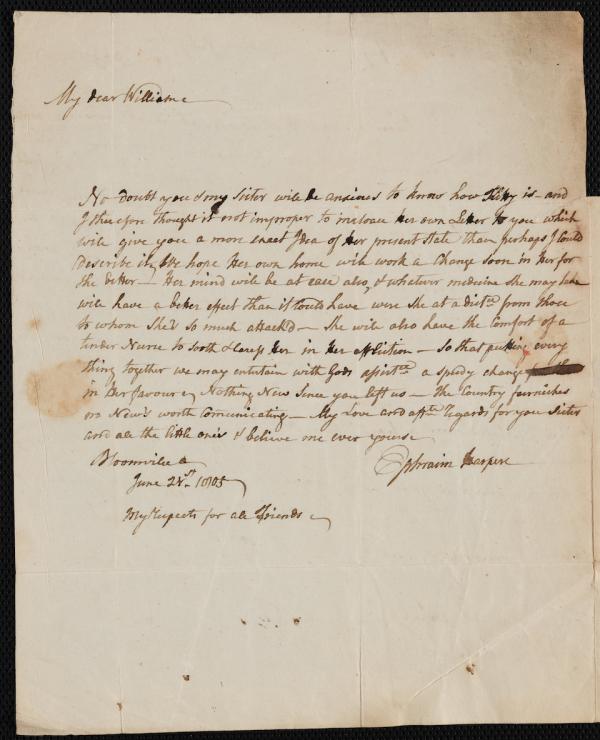 My dear William
No doubt you & my Sister will be anxious to know how Kitty is - and
I therefore thought it not improper to inclose her own Letter to you which
will give you a more exact Idea of her present State than perhaps I could
describe it, We hope Her own home will work a Change Soon in Her for
the better - Her mind will be at ease also, & whatever medicine She may take
will have a better effect than it could have were She at a dist.ce from those
to whom She's so much attach'd - She will also have the Comfort of a
tender Nurse to Sooth & Caress Her in Her affliction - So that putting every
thing together we may entertain with Gods assist.ce a Speedy change
in Her favour, Nothing New Since you left us - The Country furnishes
no New's worth Comunicating - My Love and aff.te regards for you Sister
and all the little one's & believe me ever yours
Bloomville Ephraim
June 28 1805
My Respects for all Friends